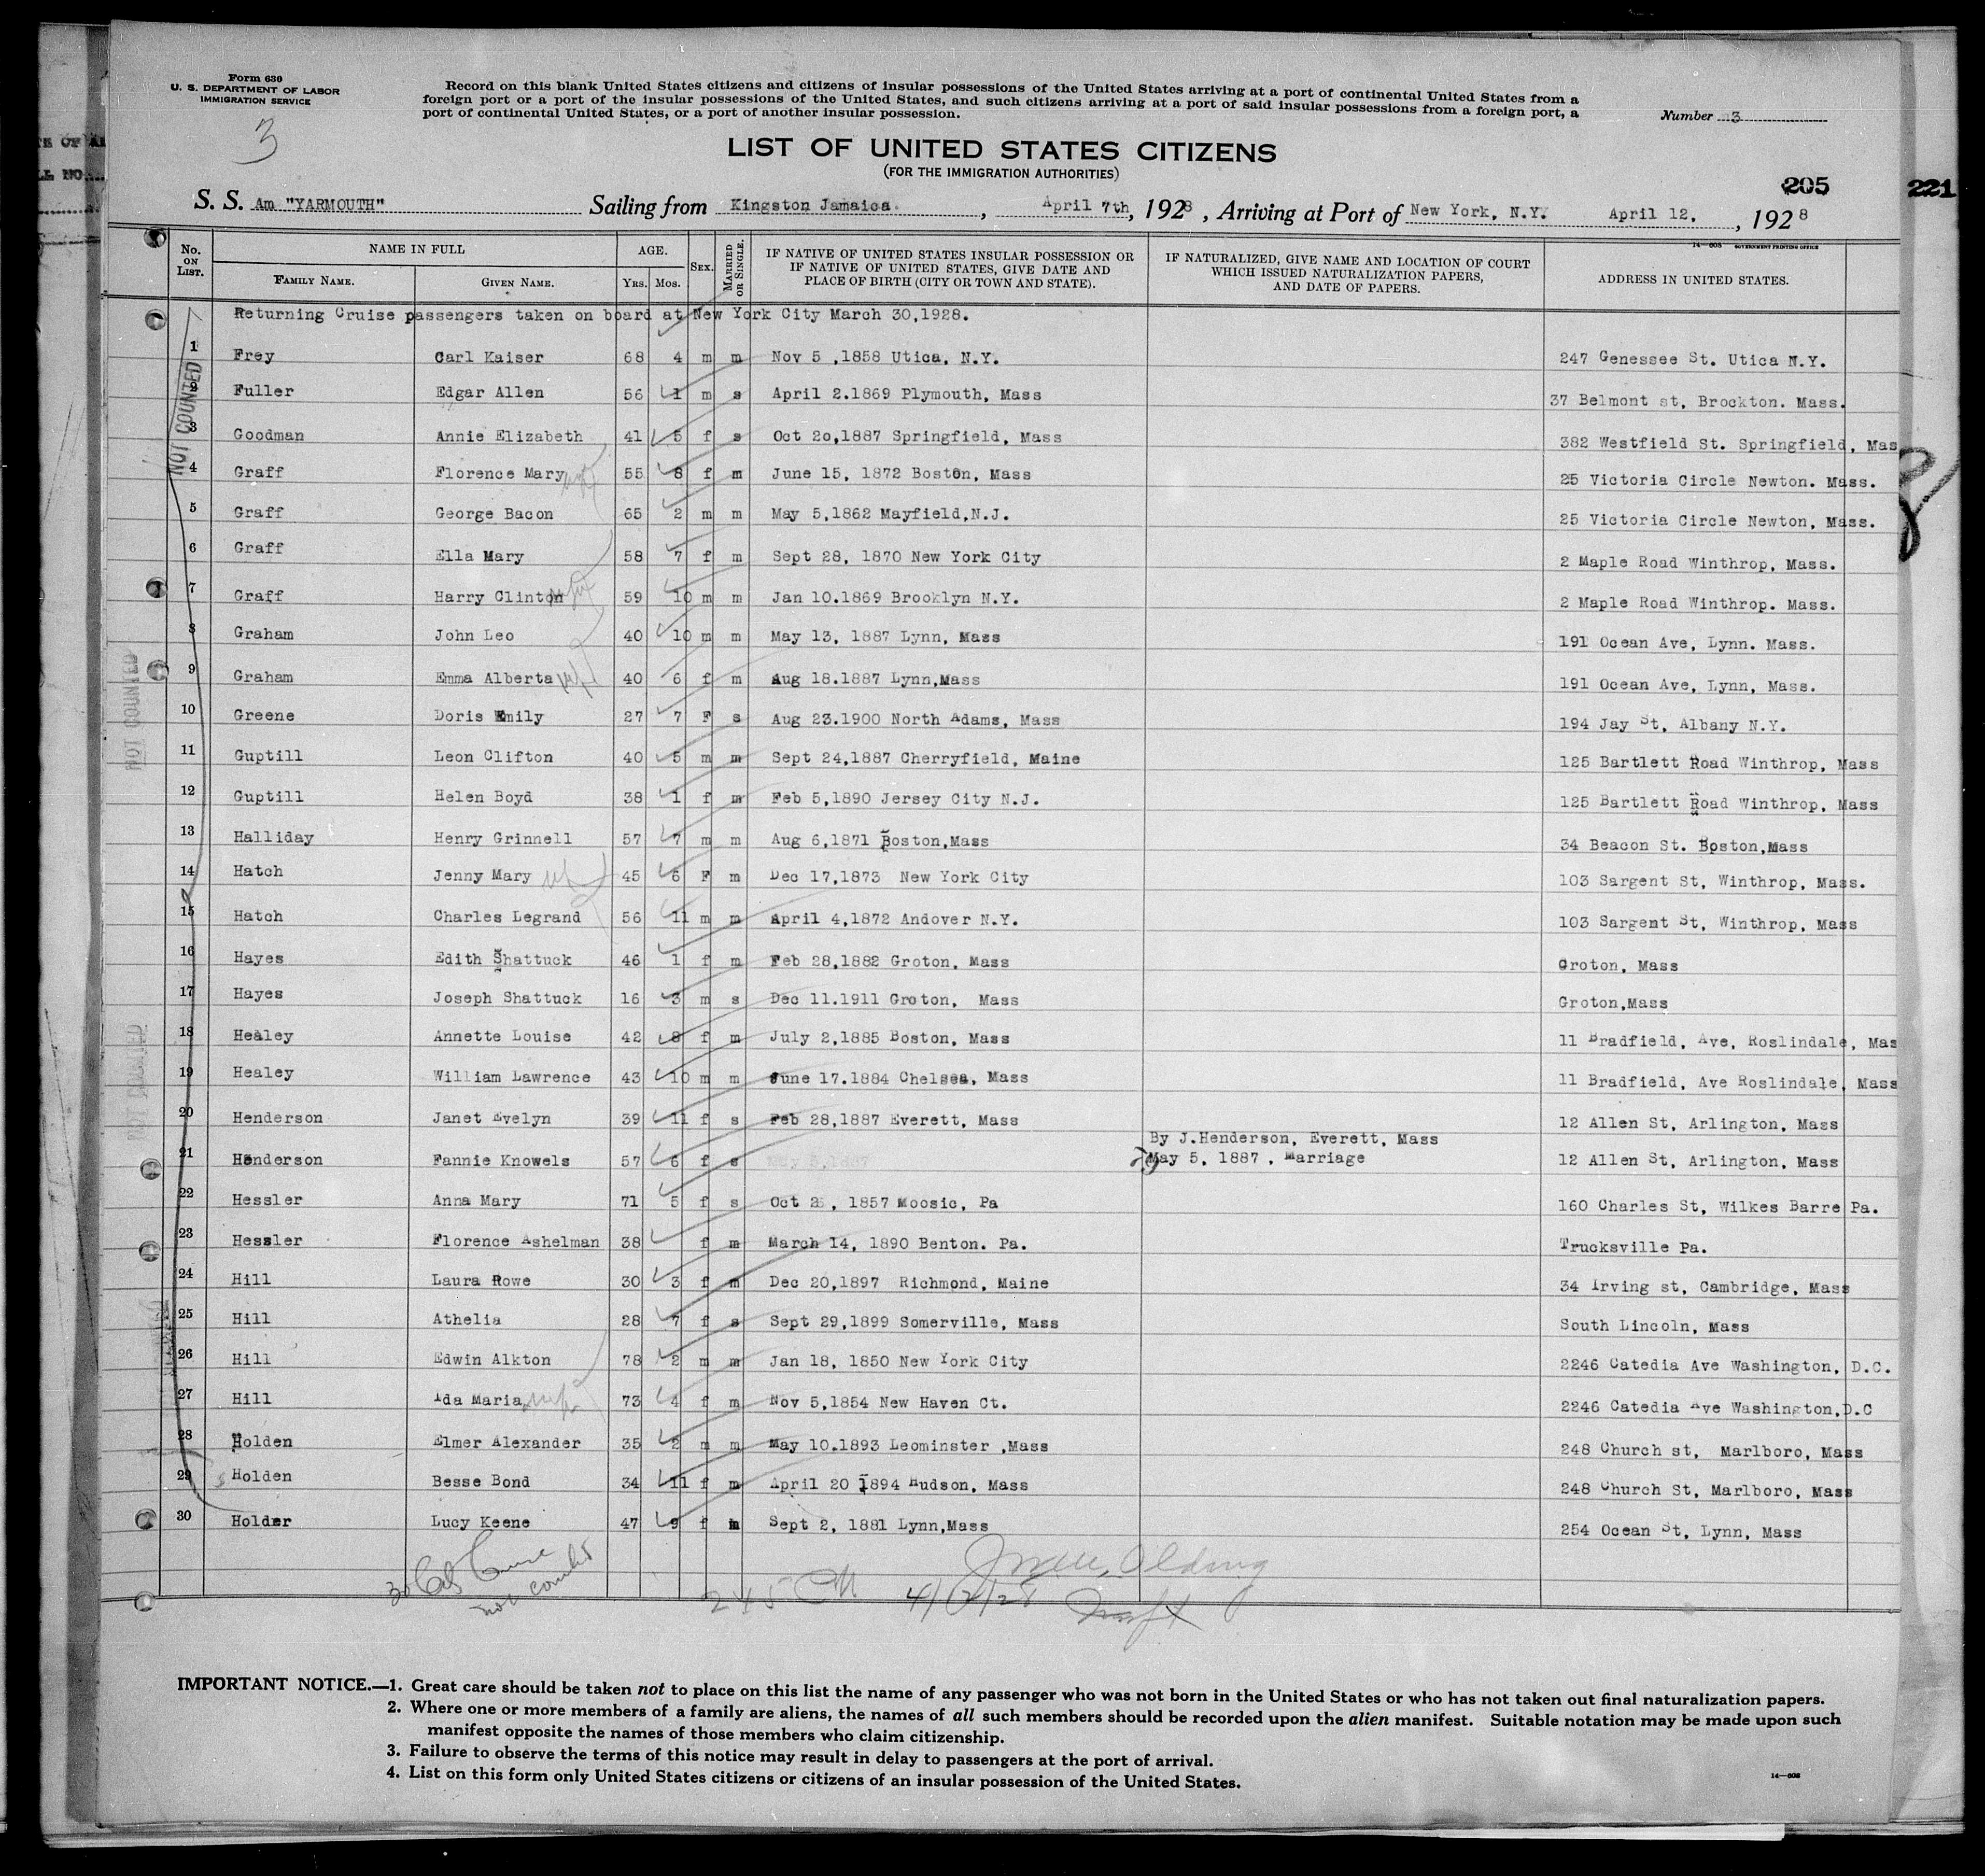 Form 630
U. S. DEPARTMENT OF LABOR
IMMIGRATION SERVICE
3
Record on this blank United States citizens and citizens of insular possessions of the United States arriving at a port of continental United States from a
foreign port or a port of the insular possessions of the United States, and such citizens arriving at a port of said insular possessions from a foreign port, a
port of continental United States, or a port of another insular possession.
Number 3
LIST OF UNITED STATES CITIZENS
(FOR THE IMMIGRATION AUTHORITIES)
205 221
S. S. Am "YARMOUTH" Sailing from Kingston Jamaica, April 7th, 1928, Arriving at Port of New York, N.Y. April 12, 1928
14—608 GOVERNMENT PRINTING OFFICE
No. ON LIST. NAME IN FULL FAMILY NAME. GIVEN NAME. AGE. YRS. MOS. SEX. MARRIED OR SINGLE. IF NATIVE OF UNITED STATES INSULAR POSSESSION OR IF NATIVE OF UNITED STATES, GIVE DATE AND PLACE OF BIRTH (CITY OR TOWN AND STATE). IF NATURALIZED, GIVE NAME AND LOCATION OF COURT WHICH ISSUED NATURALIZATION PAPERS, AND DATE OF PAPERS. ADDRESS IN UNITED STATES.
Returning Cruise passengers taken on board at New York City March 30,1928.
NOT COUNTED
1 Frey Carl Kaiser 68 4 m m Nov 5 ,1858 Utica, N.Y. 247 Genessee St. Utica N.Y.
2 Fuller Edgar Allen 56 1 m s April 2.1869 Plymouth, Mass 37 Belmont st, Brockton. Mass.
3 Goodman Annie Elizabeth 41 5 f s Oct 20,1887 Springfield, Mass 382 Westfield St. Springfield, Mas
4 Graff Florence Mary 55 8 f m June 15, 1872 Boston, Mass 25 Victoria Circle Newton. Mass.
5 Graff George Bacon 65 2 m m May 5,1862 Mayfield,N.J. 25 Victoria Circle Newton, Mass.
6 Graff Ella Mary 58 7 f m Sept 28, 1870 New York City 2 Maple Road Winthrop, Mass.
7 Graff Harry Clinton 59 10 m m Jan 10.1869 Brooklyn N.Y. 2 Maple Road Winthrop. Mass.
8 Graham John Leo 40 10 m m May 13, 1887 Lynn, Mass 191 Ocean Ave, Lynn. Mass.
9 Graham Emma Alberta 40 6 f m Aug 18.1887 Lynn,Mass 191 Ocean Ave, Lynn, Mass.
10 Greene Doris Emily 27 7 F s Aug 23.1900 North Adams, Mass 194 Jay St, Albany N.Y.
11 Guptill Leon Clifton 40 5 m m Sept 24,1887 Cherryfield, Maine 125 Bartlett Road Winthrop, Mass
12 Guptill Helen Boyd 38 1 f m Feb 5,1890 Jersey City N.J. 125 Bartlett Road Winthrop, Mass
13 Halliday Henry Grinnell 57 7 m m Aug 6,1871 Boston,Mass 34 Beacon St. Boston,Mass
14 Hatch Jenny Mary 45 6 F m Dec 17,1873 New York City 103 Sargent St, Winthrop, Mass.
15 Hatch Charles Legrand 56 11 m m April 4,1872 Andover N.Y. 103 Sargent St, Winthrop, Mass
16 Hayes Edith Shattuck 46 1 f m Feb 28,1882 Groton, Mass Groton, Mass
17 Hayes Joseph Shattuck 16 3 m s Dec 11.1911 Groton, Mass Groton,Mass
18 Healey Annette Louise 42 8 f m July 2,1885 Boston, Mass 11 Bradfield, Ave, Roslindale, Mas
19 Healey William Lawrence 43 10 m m June 17.1884 Chelsea, Mass 11 Bradfield, Ave Roslindale, Mass
20 Henderson Janet Evelyn 39 11 f s Feb 28,1887 Everett, Mass 12 Allen St, Arlington, Mass
By J.Henderson, Everett, Mass
21 Henderson Fannie Knowels 57 6 f s May 5, 1887 , Marriage 12 Allen St, Arlington, Mass
22 Hessler Anna Mary 71 5 f s Oct 25, 1857 Moosic, Pa 160 Charles St, Wilkes Barre Pa.
23 Hessler Florence Ashelman 38 f m March 14, 1890 Benton. Pa. Trucksville Pa.
24 Hill Laura Rowe 30 3 f m Dec 20,1897 Richmond, Maine 34 Irving st, Cambridge, Mass
25 Hill Athelia 28 7 f s Sept 29,1899 Somerville, Mass South Lincoln, Mass
26 Hill Edwin Alkton 78 2 m m Jan 18, 1850 New York City 2246 Catedia Ave Washington, D.C.
27 Hill Ida Maria 73 4 f m Nov 5,1854 New Haven Ct. 2246 Catedia Ave Washington,D.C
28 Holden Elmer Alexander 35 2 m m May 10.1893 Leominster ,Mass 248 Church st, Marlboro, Mass
29 Holden Besse Bond 34 11 f m April 20 1894 Hudson, Mass 248 Church St, Marlboro, Mass
30 Holder Lucy Keene 47 9 f m Sept 2, 1881 Lynn,Mass 254 Ocean St, Lynn, Mass
30 Cruise
not counted
4/12/28
IMPORTANT NOTICE.—1. Great care should be taken not to place on this list the name of any passenger who was not born in the United States or who has not taken out final naturalization papers.
2. Where one or more members of a family are aliens, the names of all such members should be recorded upon the alien manifest. Suitable notation may be made upon such
manifest opposite the names of those members who claim citizenship.
3. Failure to observe the terms of this notice may result in delay to passengers at the port of arrival.
4. List on this form only United States citizens or citizens of an insular possession of the United States.
14—608